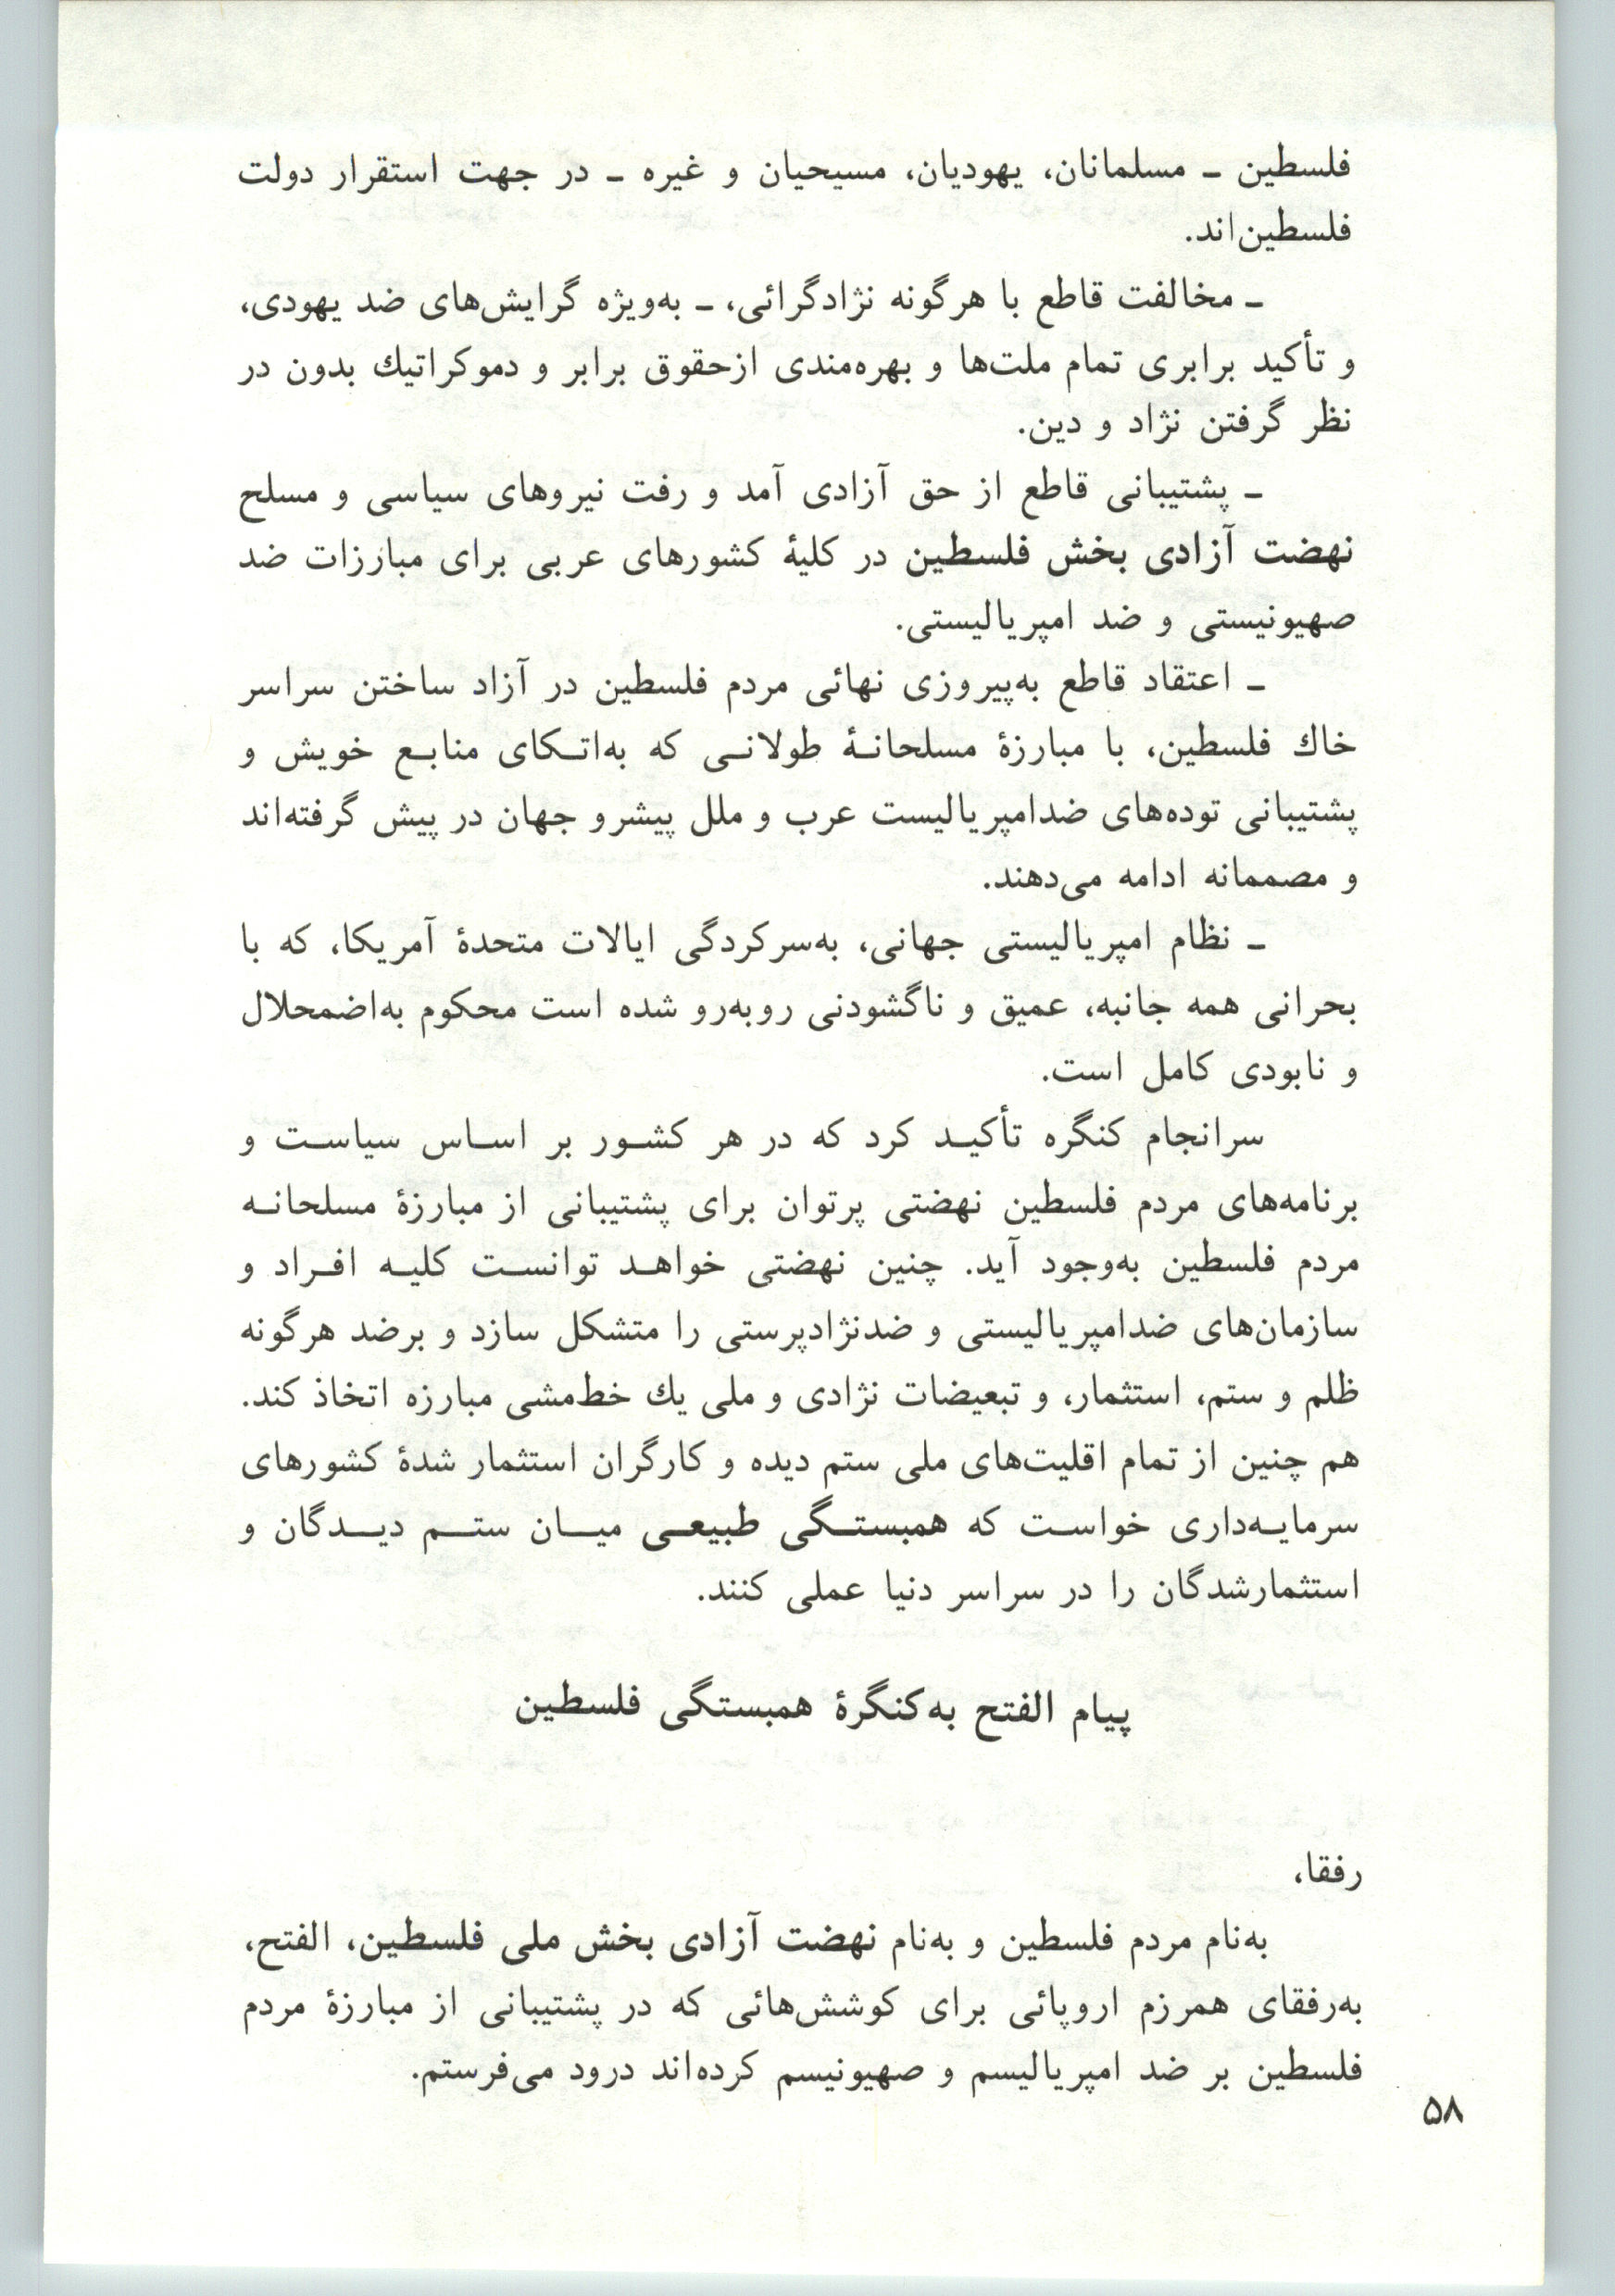 فلسطین ـ مسلمانان، یهودیان، مسیحیان و غیره ـ در جهت استقرار دولت
فلسطین‌اند.
ـ مخالفت قاطع با هرگونه نژادگرائی، ـ به‌ویژه گرایش‌های ضد یهودی،
و تأکید برابری تمام ملت‌ها و بهره‌مندی ازحقوق برابر و دموکراتیك بدون در
نظر گرفتن نژاد و دین.
ـ پشتیبانی قاطع از حق آزادی آمد و رفت نیروهای سیاسی و مسلح
نهضت آزادی بخش فلسطین در کلیهٔ کشورهای عربی برای مبارزات ضد
صهیونیستی و ضد امپریالیستی.
ـ اعتقاد قاطع به‌پیروزی نهائی مردم فلسطین در آزاد ساختن سراسر
خاك فلسطین، با مبارزهٔ مسلحانـهٔ طولانـی که به‌اتـکای منابـع خویش و
پشتیبانی توده‌های ضدامپریالیست عرب و ملل پیشرو جهان در پیش گرفته‌اند
و مصممانه ادامه می‌دهند.
ـ نظام امپریالیستی جهانی، به‌سرکردگی ایالات متحدهٔ آمریکا، که با
بحرانی همه جانبه، عمیق و ناگشودنی روبه‌رو شده است محکوم به‌اضمحلال
و نابودی کامل است.
سرانجام کنگره تأکیـد کرد که در هر کشـور بر اسـاس سیاسـت و
برنامه‌های مردم فلسطین نهضتی پرتوان برای پشتیبانی از مبارزهٔ مسلحانـه
مردم فلسطین به‌وجود آید. چنین نهضتی خواهـد توانسـت کلیـه افـراد و
سازمان‌های ضدامپریالیستی و ضدنژادپرستی را متشکل سازد و برضد هرگونه
ظلم و ستم، استثمار، و تبعیضات نژادی و ملی یك خط‌مشی مبارزه اتخاذ کند.
هم چنین از تمام اقلیت‌های ملی ستم دیده و کارگران استثمار شدهٔ کشورهای
سرمایـه‌داری خواسـت که همبستـگی طبیعـی میـان ستـم دیـدگان و
استثمارشدگان را در سراسر دنیا عملی کنند.
پیام الفتح به‌کنگرهٔ همبستگی فلسطین
رفقا،
به‌نام مردم فلسطین و به‌نام نهضت آزادی بخش ملی فلسطین، الفتح،
به‌رفقای همرزم اروپائی برای کوشش‌هائی که در پشتیبانی از مبارزهٔ مردم
فلسطین بر ضد امپریالیسم و صهیونیسم کرده‌اند درود می‌فرستم.
۵۸